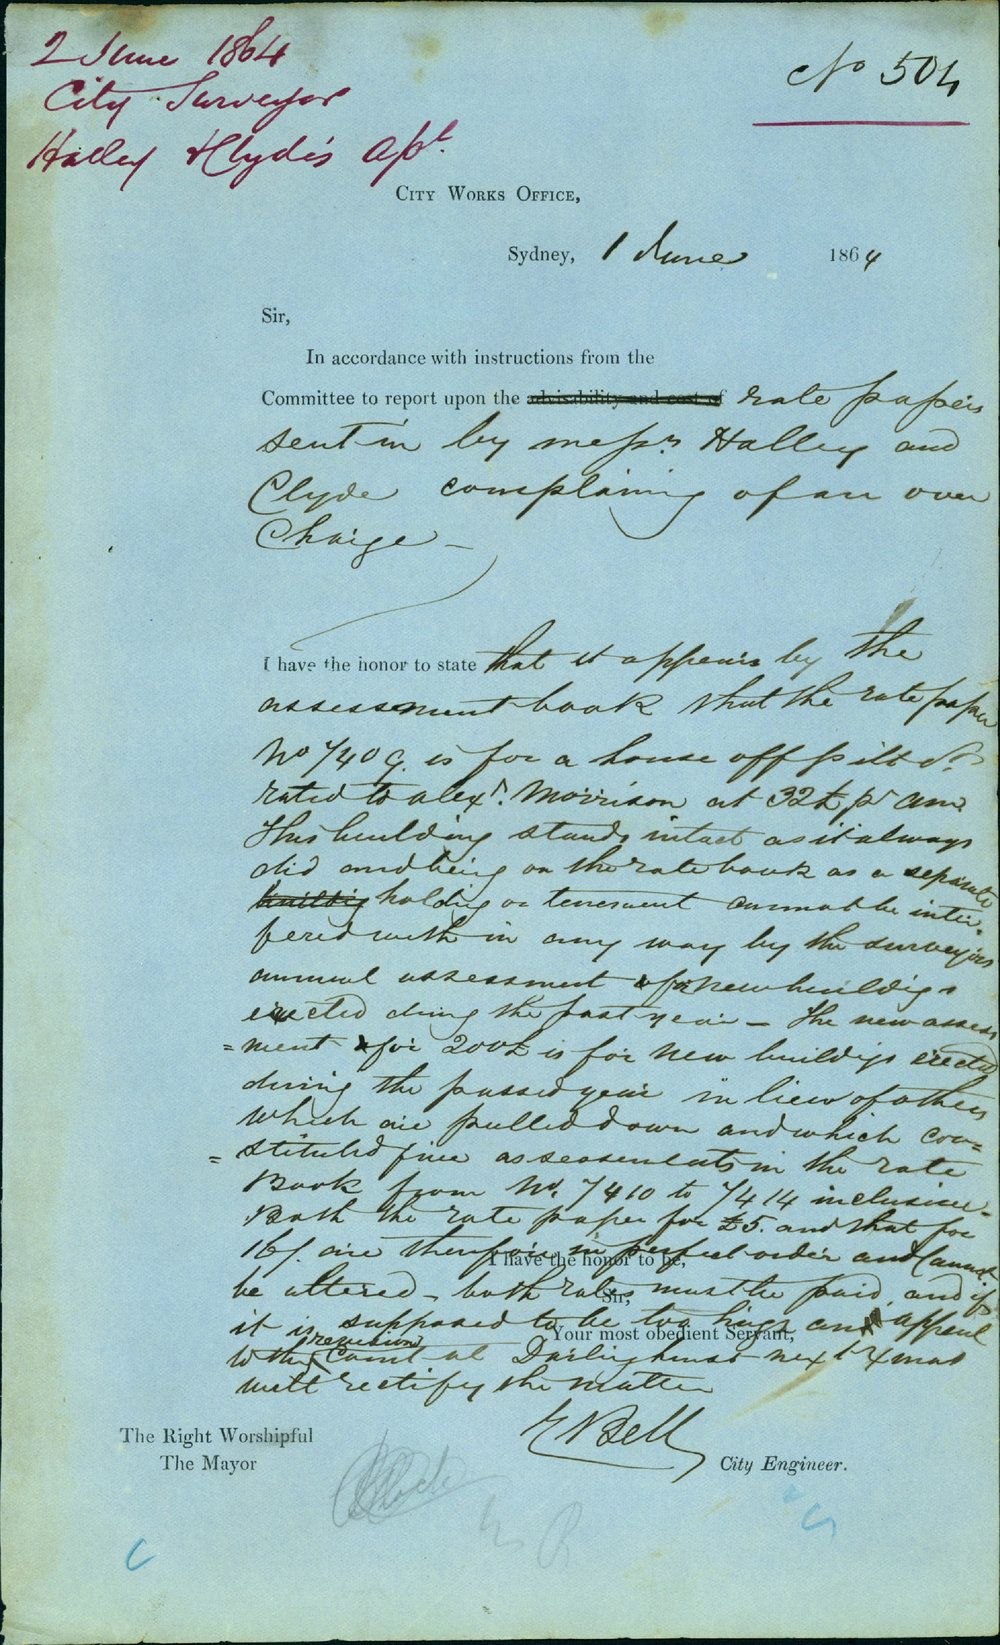 2 June 1864
City Surveyor
Halley & Clyde's apl.
No 504
City Works Office,
Sydney, 1 June 1864
Sir,
In accordance with instructions from the
Committee to report upon the advisability and cost of rate papers
sent in by messrs Halley and
Clyde complaining of an over
Charge —
I have the honor to state that it appears by the
assessment book that the rate paper
No 7409. is for a house off pitt St.
rated to alexr. Morrison at 32£ pr ann.
This building stands intact as it always
did and being on the rate book as a separate
building holding or tenement cannot be inter-
fered with in any way by the surveyors
annual assessment of new buildings
erected during the past year — The new assess
= ment for 200£ is for new buildings erected
during the passed year in liew of others
which are pulled down and which con=
= stituted five assessments in the rate
Book from No. 7410 to 7414 inclusive.
Both the rate paper for £5. and that for
16/. are therefore in perfect order and cannot
I have the honor to be,
be altered — both rates must be paid, and if
Sir,
it is supposed to be too high an appeal
Your most obedient Servant,
to the revision Court at Darlinghurst next
will rectify the matter
E Bell
City Engineer.
The Right Worshipful
The Mayor